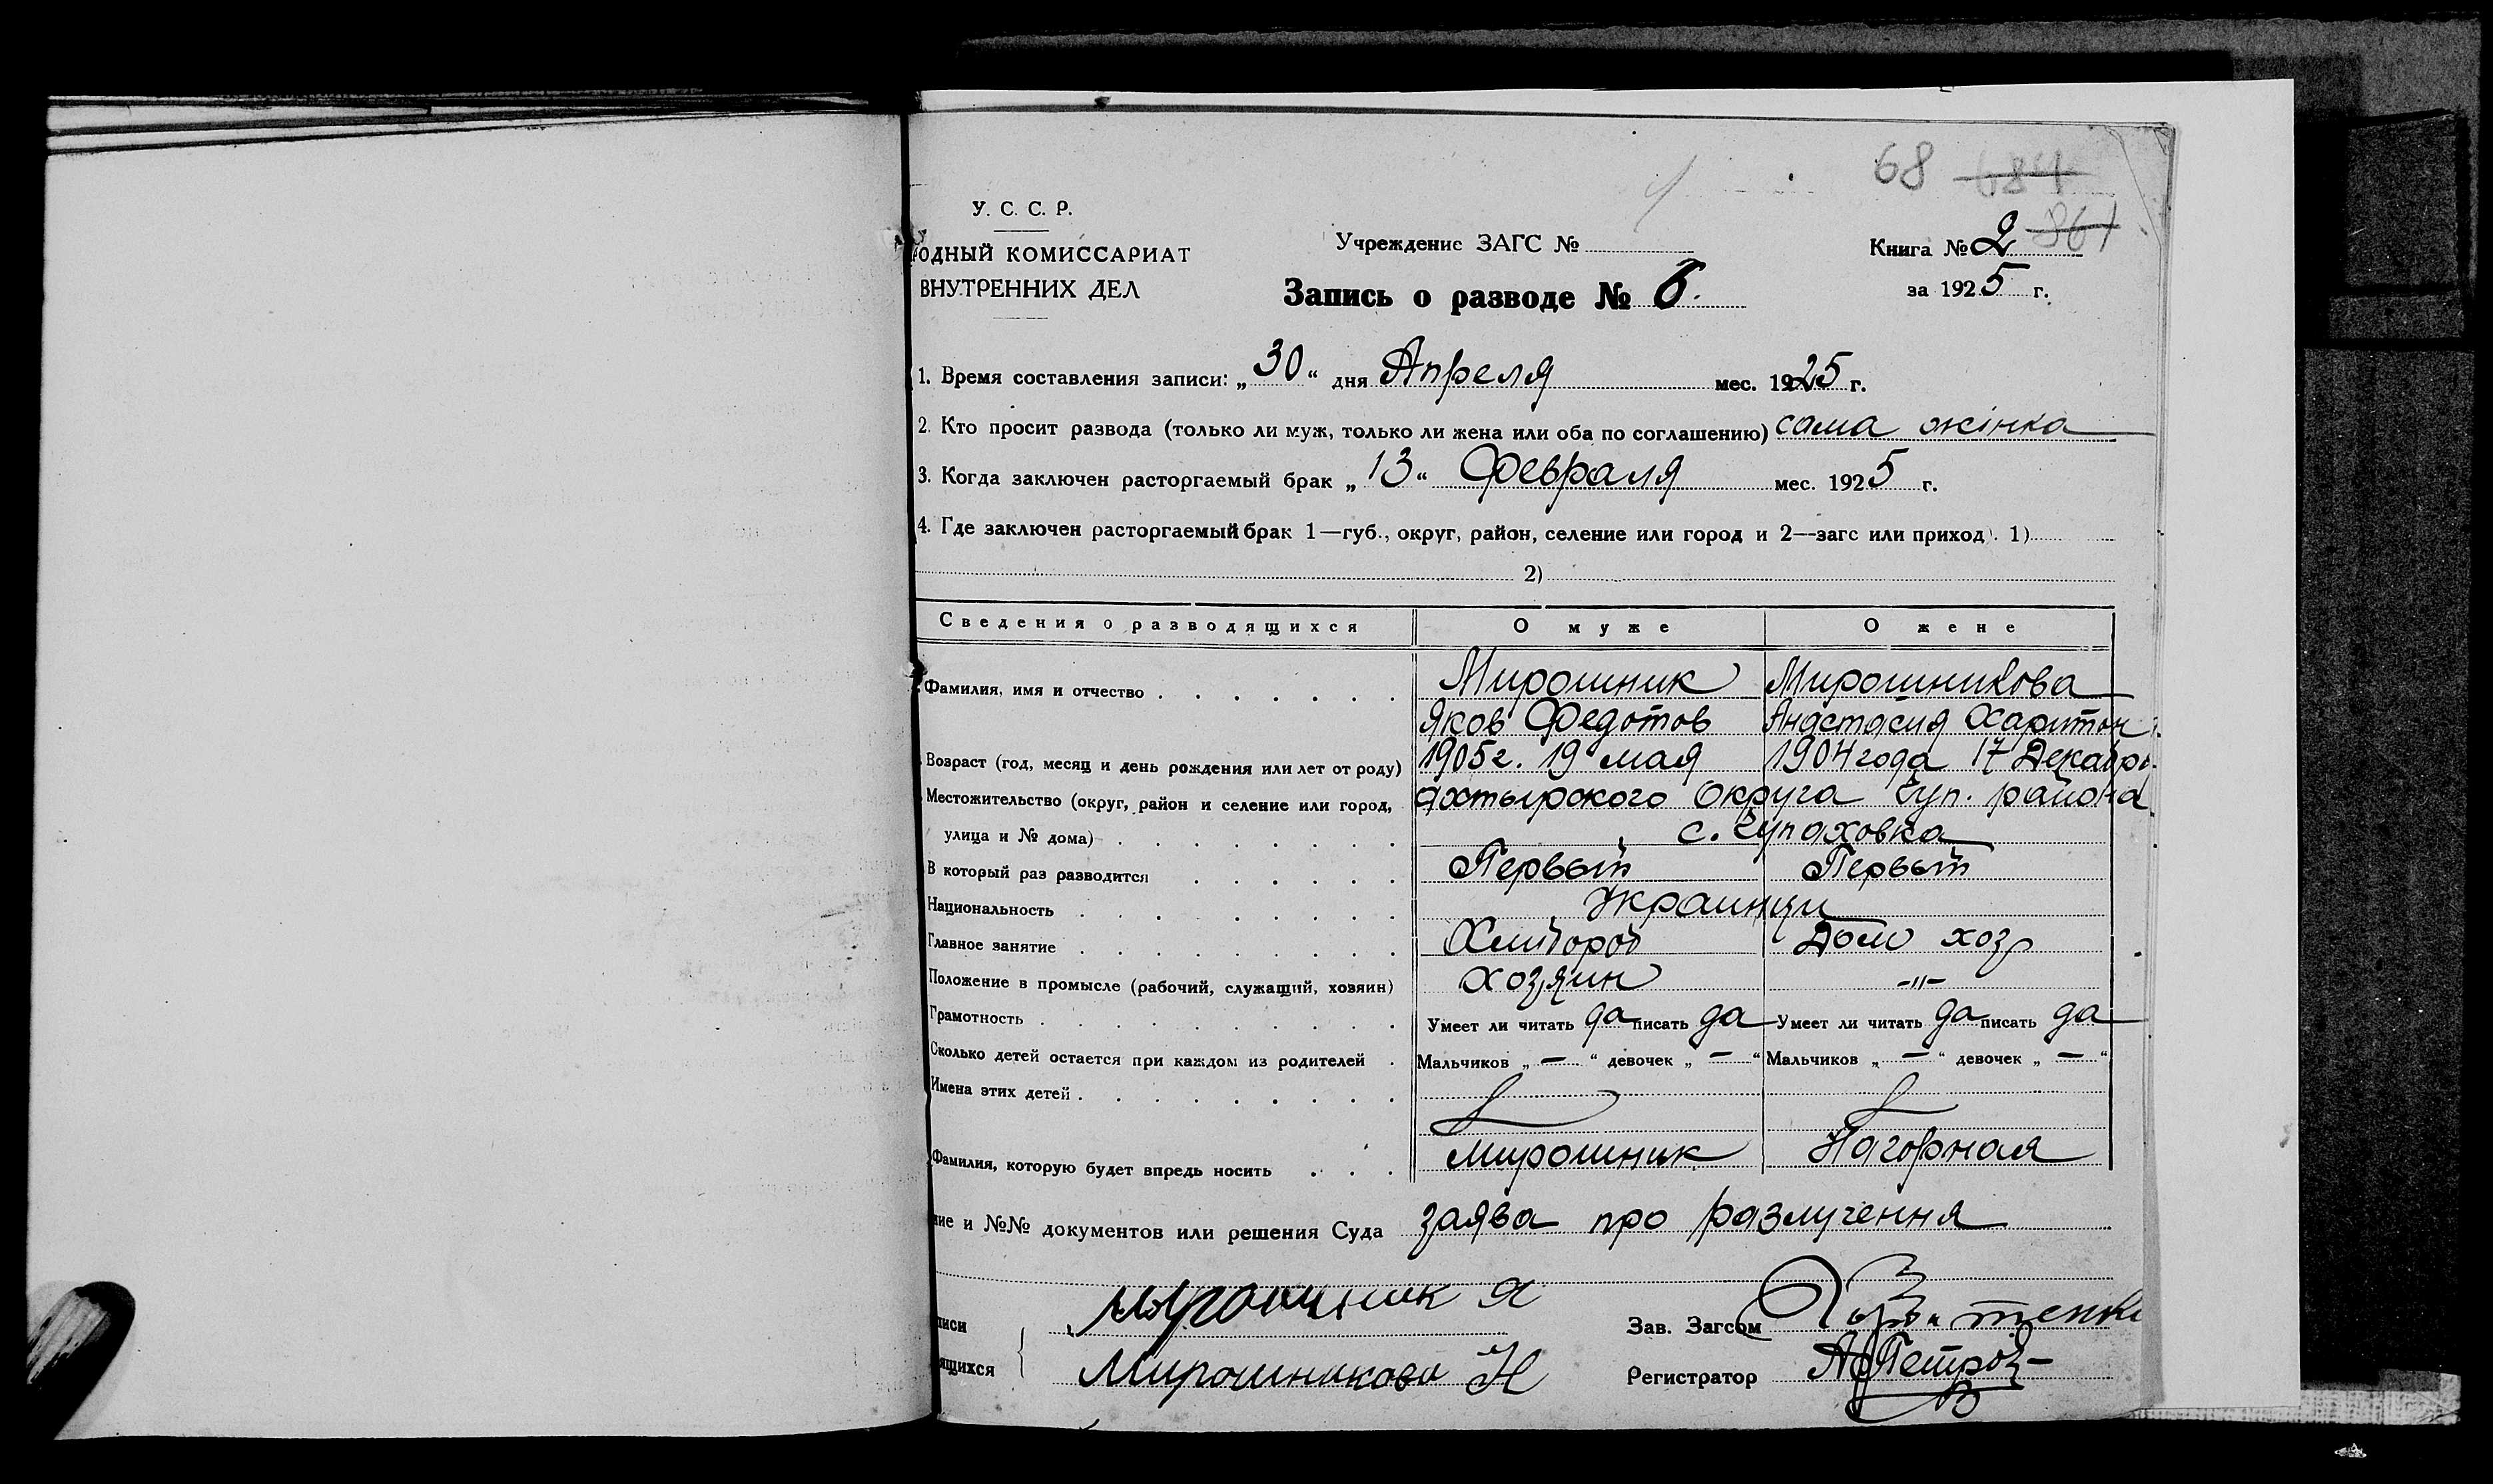 68 684
У. С. С. Р.
861
ОДНЫЙ КОМИССАРИАТ
ВНУТРЕННИХ ДЕЛ
Учреждение ЗАГС №
Книга № 2
Запись о разводе № 6.
за 1925 г.
1. Время составления записи: „30“ дня Апреля мес. 1925 г.
2. Кто просит развода (только ли муж, только ли жена или оба по соглашению) сама жінка
3. Когда заключен расторгаемый брак „13“ Февраля мес. 1925 г.
4. Где заключен расторгаемый брак 1—губ., округ, район, селение или город и 2—загс или приход). 1)
2)
Сведения о разводящихся О муже О жене
Фамилия, имя и отчество Мирошник Мирошникова
Яков Федотов Анастасия Харитон
Возраст (год, месяц и день рождения или лет от роду) 1905г. 19 мая 1904 года 17 Декабр.
Местожительство (округ, район и селение или город, ахтырского Округа Чуп. района
улица и № дома) с. Чупаховка
В который раз разводится Первый Первый
Национальность Украинци
Главное занятие Хлибороб Дом хоз
Положение в промысле (рабочий, служащий, хозяин) хозяин -〃-
Грамотность Умеет ли читать да писать да Умеет ли читать да писать да
Сколько детей остается при каждом из родителей Мальчиков „ — “ девочек „ — “ Мальчиков „ — “ девочек „ — “
Имена этих детей
Фамилия, которую будет впредь носить Мирошник Нагорная
ние и №№ документов или решения Суда заява про разлучення
писи Мирошник Я
Зав. Загсом
ящихся Мирошникова Н
Регистратор АПетров